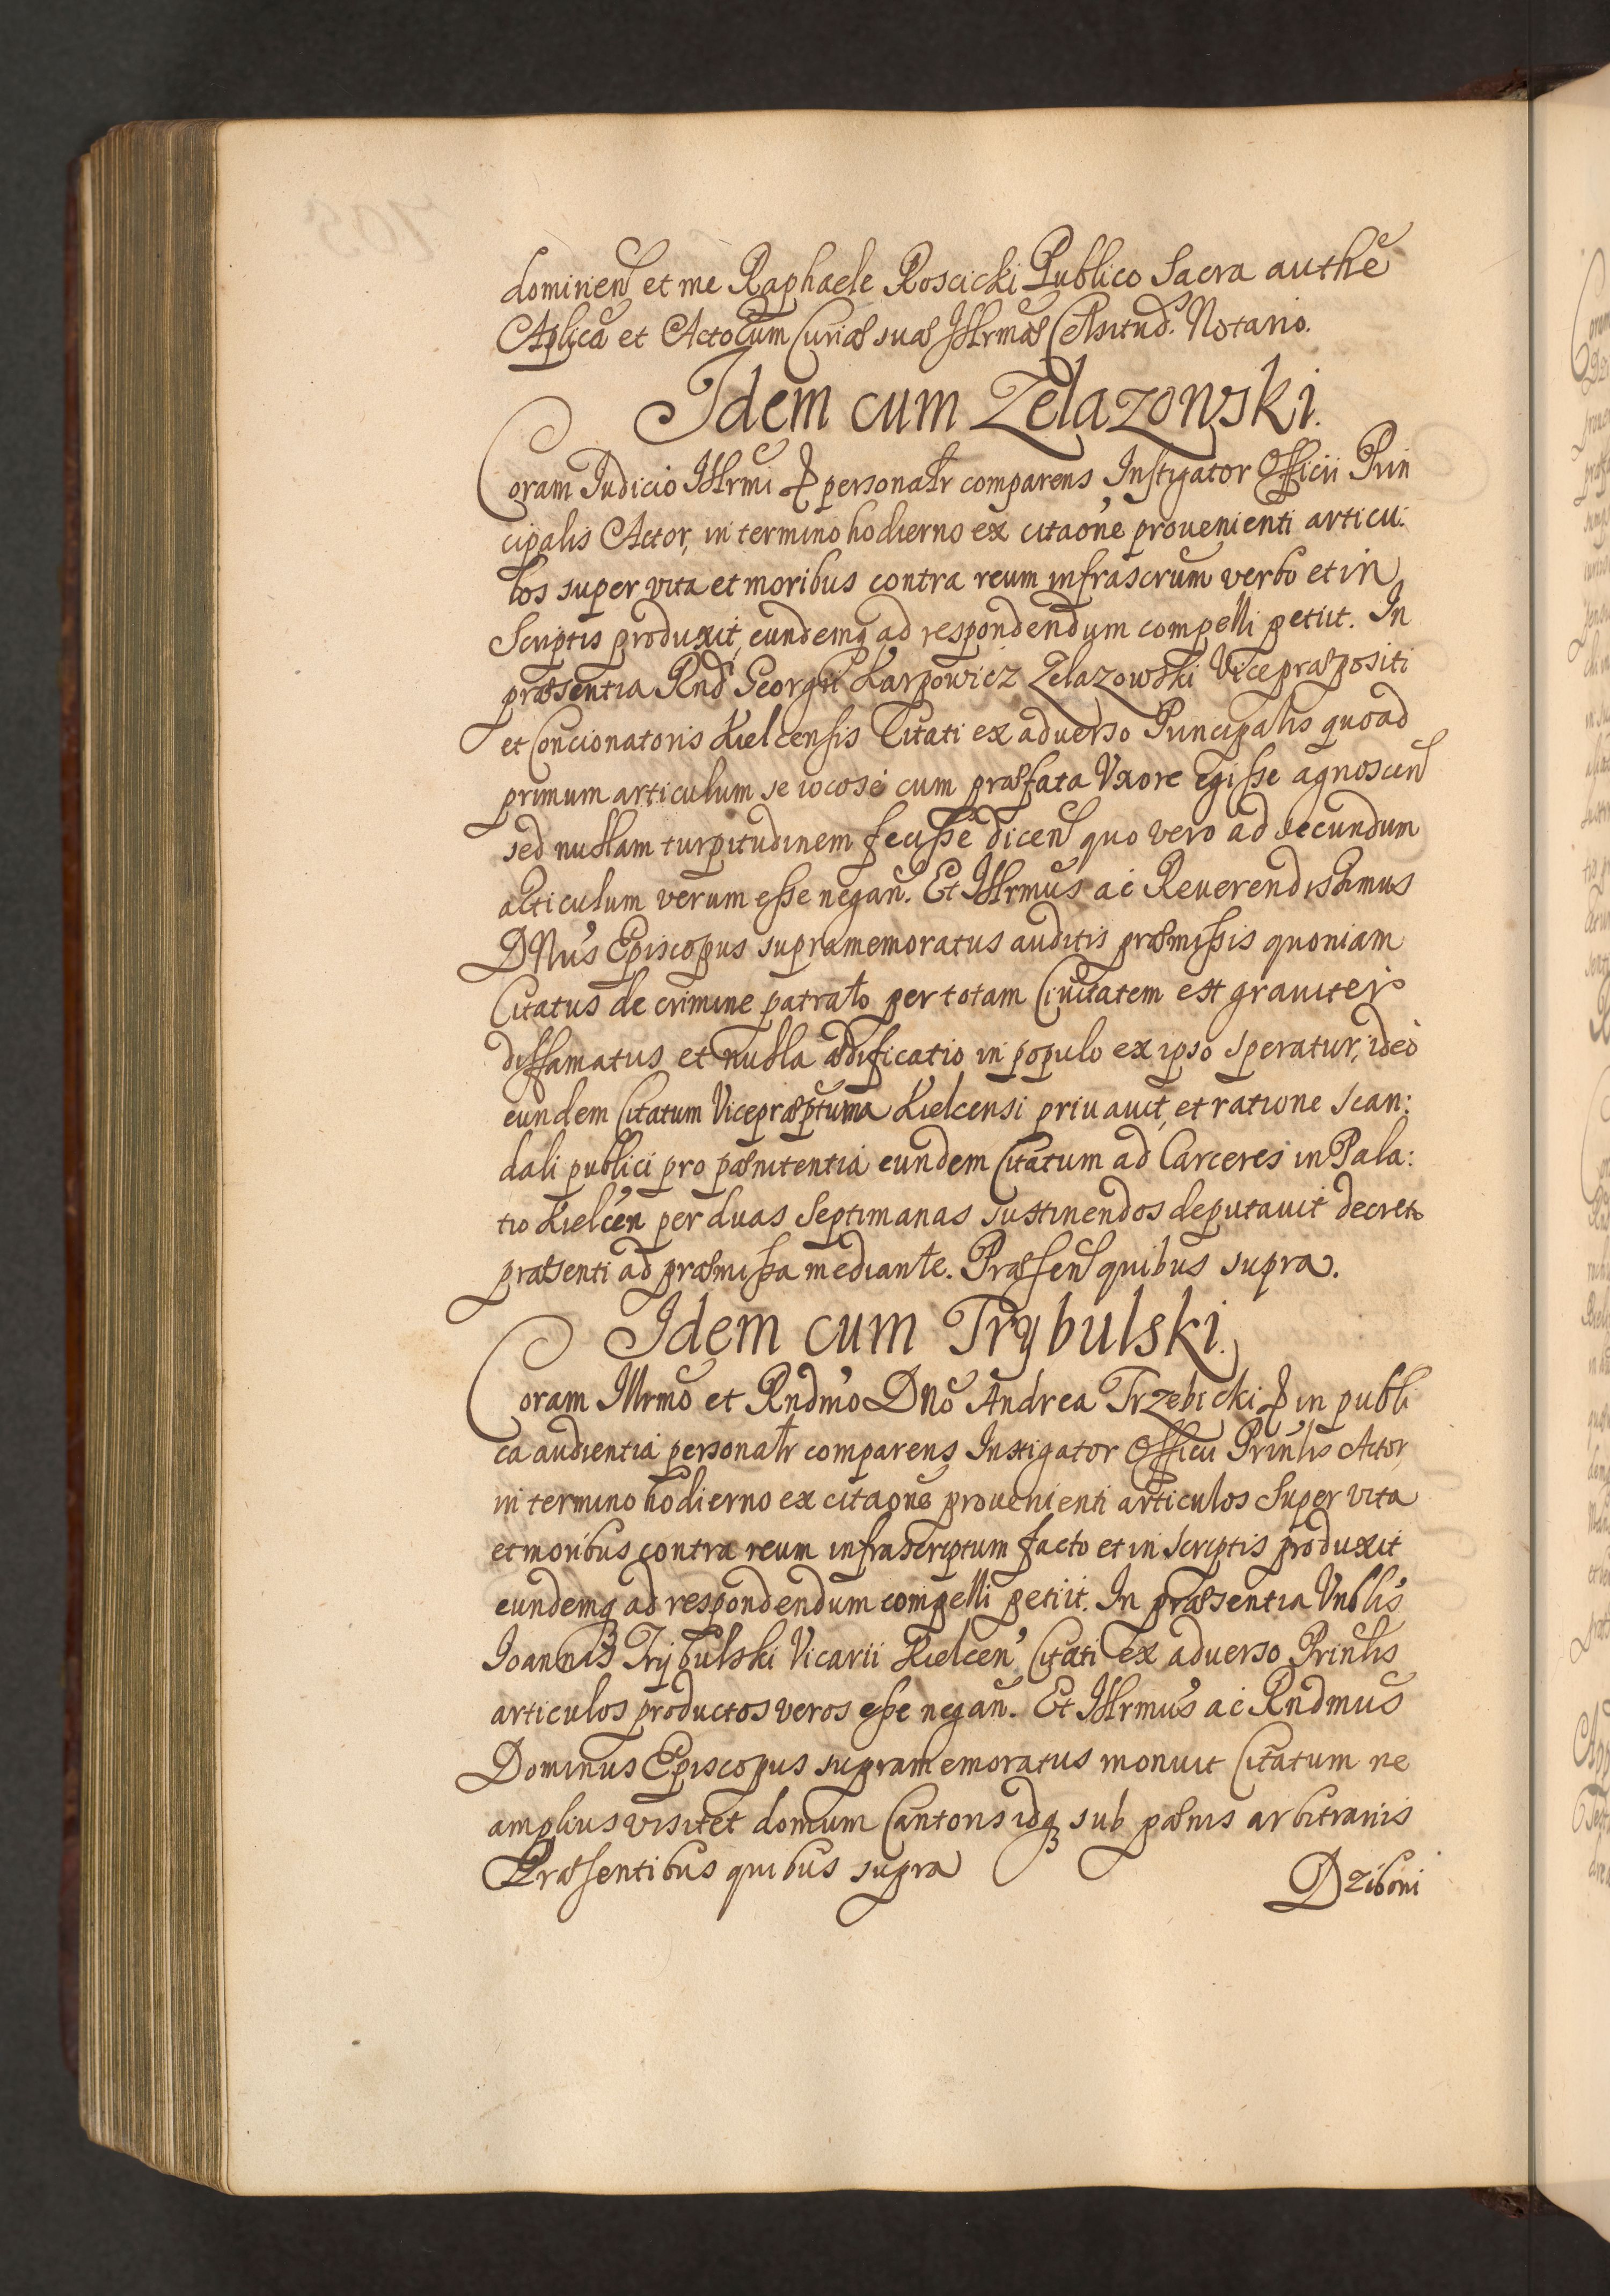 dominen et me Raphaele Roscicki Publico Sacra authē
Aplica et Actorum Curiæ suæ Illrmæ Celsitud. Notario.
Idem cum Zelazowski.
Coram Judicio Illrmi & personalr comparens Instigator Officii Prin
cipalis Actor, in termino hodierno ex citaōne provenienti articu:
los super vita et moribus contra reum infrascrum verbo et in
Scriptis produxit, eundemq ad respondendum compelli petiit. In
præsentia Rnd Georgii Karpowicz Zelazowski Vicepræpositi
et Concionatoris Kielcensis Citati ex adverso Principalis quoad
primum articulum se iocosè cum præfata Uxore egisse agnoscen
sed nullam turpitudinem fecisse dicen quo vero ad secundum
articulum verum esse negan̄. Et Illrmus ac Reverendissimus
DNus Episcopus supramemoratus auditis præmissis quoniam
Citatus de crimine patrato per totam Civitatem est graviter
diffamatus et nulla ædificatio in populo ex ipso speratur, ideò
eundem Citatum Vicepræptuma Kielcensi privavit, et ratione scan:
dali publici pro pænitentia eundem Citatum ad Carceres in Pala:
tio Kielcen per duas Septimanas sustinendos deputavit decreto
præsenti ad præmissa mediante. Præsen quibus supra.
Idem cum Trybulski.
Coram Illrmo et Rndmo DNo Andrea Trzebicki & in publi
ca audientia personalr comparens Instigator Officii Prinlis Actor,
in termino hodierno ex citaōne provenienti articulos super vita
et moribus contra reum infrascriptum facto et in scriptis produxit
eundemq ad respondendum compelli petiit. In præsentia Vnblis
Ioannis Trybulski Vicarii Kielcen Citati ex adverso Prinlis
articulos productos veros esse negan̄. Et Illrmus ac Rndmus
Dominus Episcopus supramemoratus monuit Citatum ne
amplius visitet domum Cantoris idq sub pænis arbitrariis
Præsentibus quibus supra
Dziboni